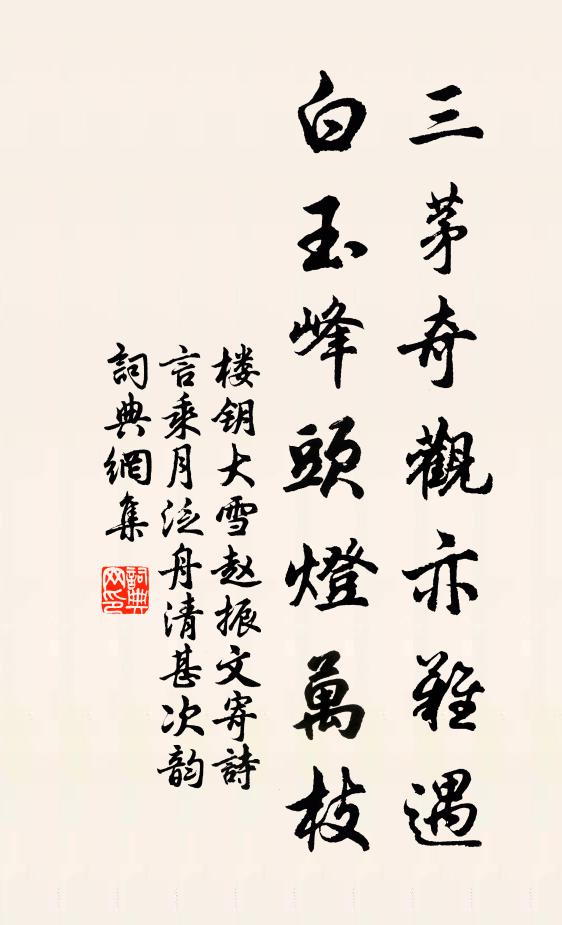 三茅奇觀亦難遇
白玉峰頭燈萬枝
楼钥大雪赵振文寄詩
言乘月泛舟清甚次韵
詞典網集
詞典网印